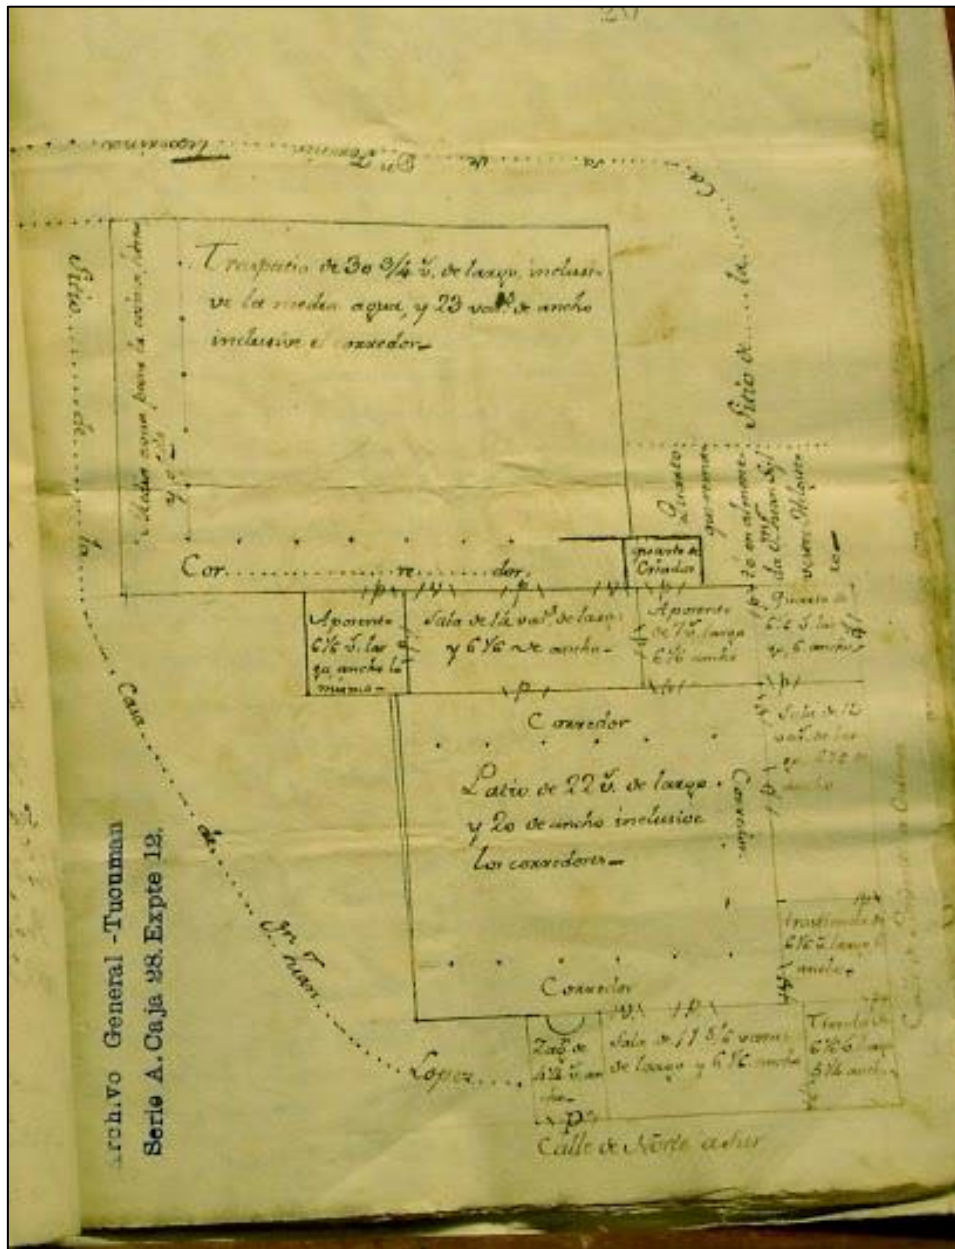 Sitio de la Casa de Dn Fermin
Traspatio de 30 3/4 v.s de largo, inclusi-
ve la media agua, y 23 var.s de ancho
inclusive el corredor
Media agua para la cocina, horno
Sitio de la Casa de Dn Juan Lopez
Corredor
Quarto de
Criados
Quarto
que rema-
tó en almone-
Aposento
6 1/6 v.s lar
go, ancho lo
mismo
Sala de 12 var.s de largo
y 6 1/6 de ancho
Aposento
de 7 v.s largo
6 1/6 ancho
Quarto de
6 1/6 v.s lar
go, 6 ancho
Corredor
Sala de 12
var.s de lar
go
ancho
Patio de 22 v.s de largo
y 20 de ancho inclusive
los corredores
Corredor
Trastienda de
6 1/6 v.s largo
ancho
Corredor
Zag.n de
4 1/4 v.s an
cho
Sala de 11 5/6 varas
de largo y 6 1/6 ancho
Tienda de
6 1/6 v.s largo
5 1/6 ancho
Calle de Norte a Sur
Calle de
p
Archivo General -Tucuman
Serie A. Caja 28. Expte 12.